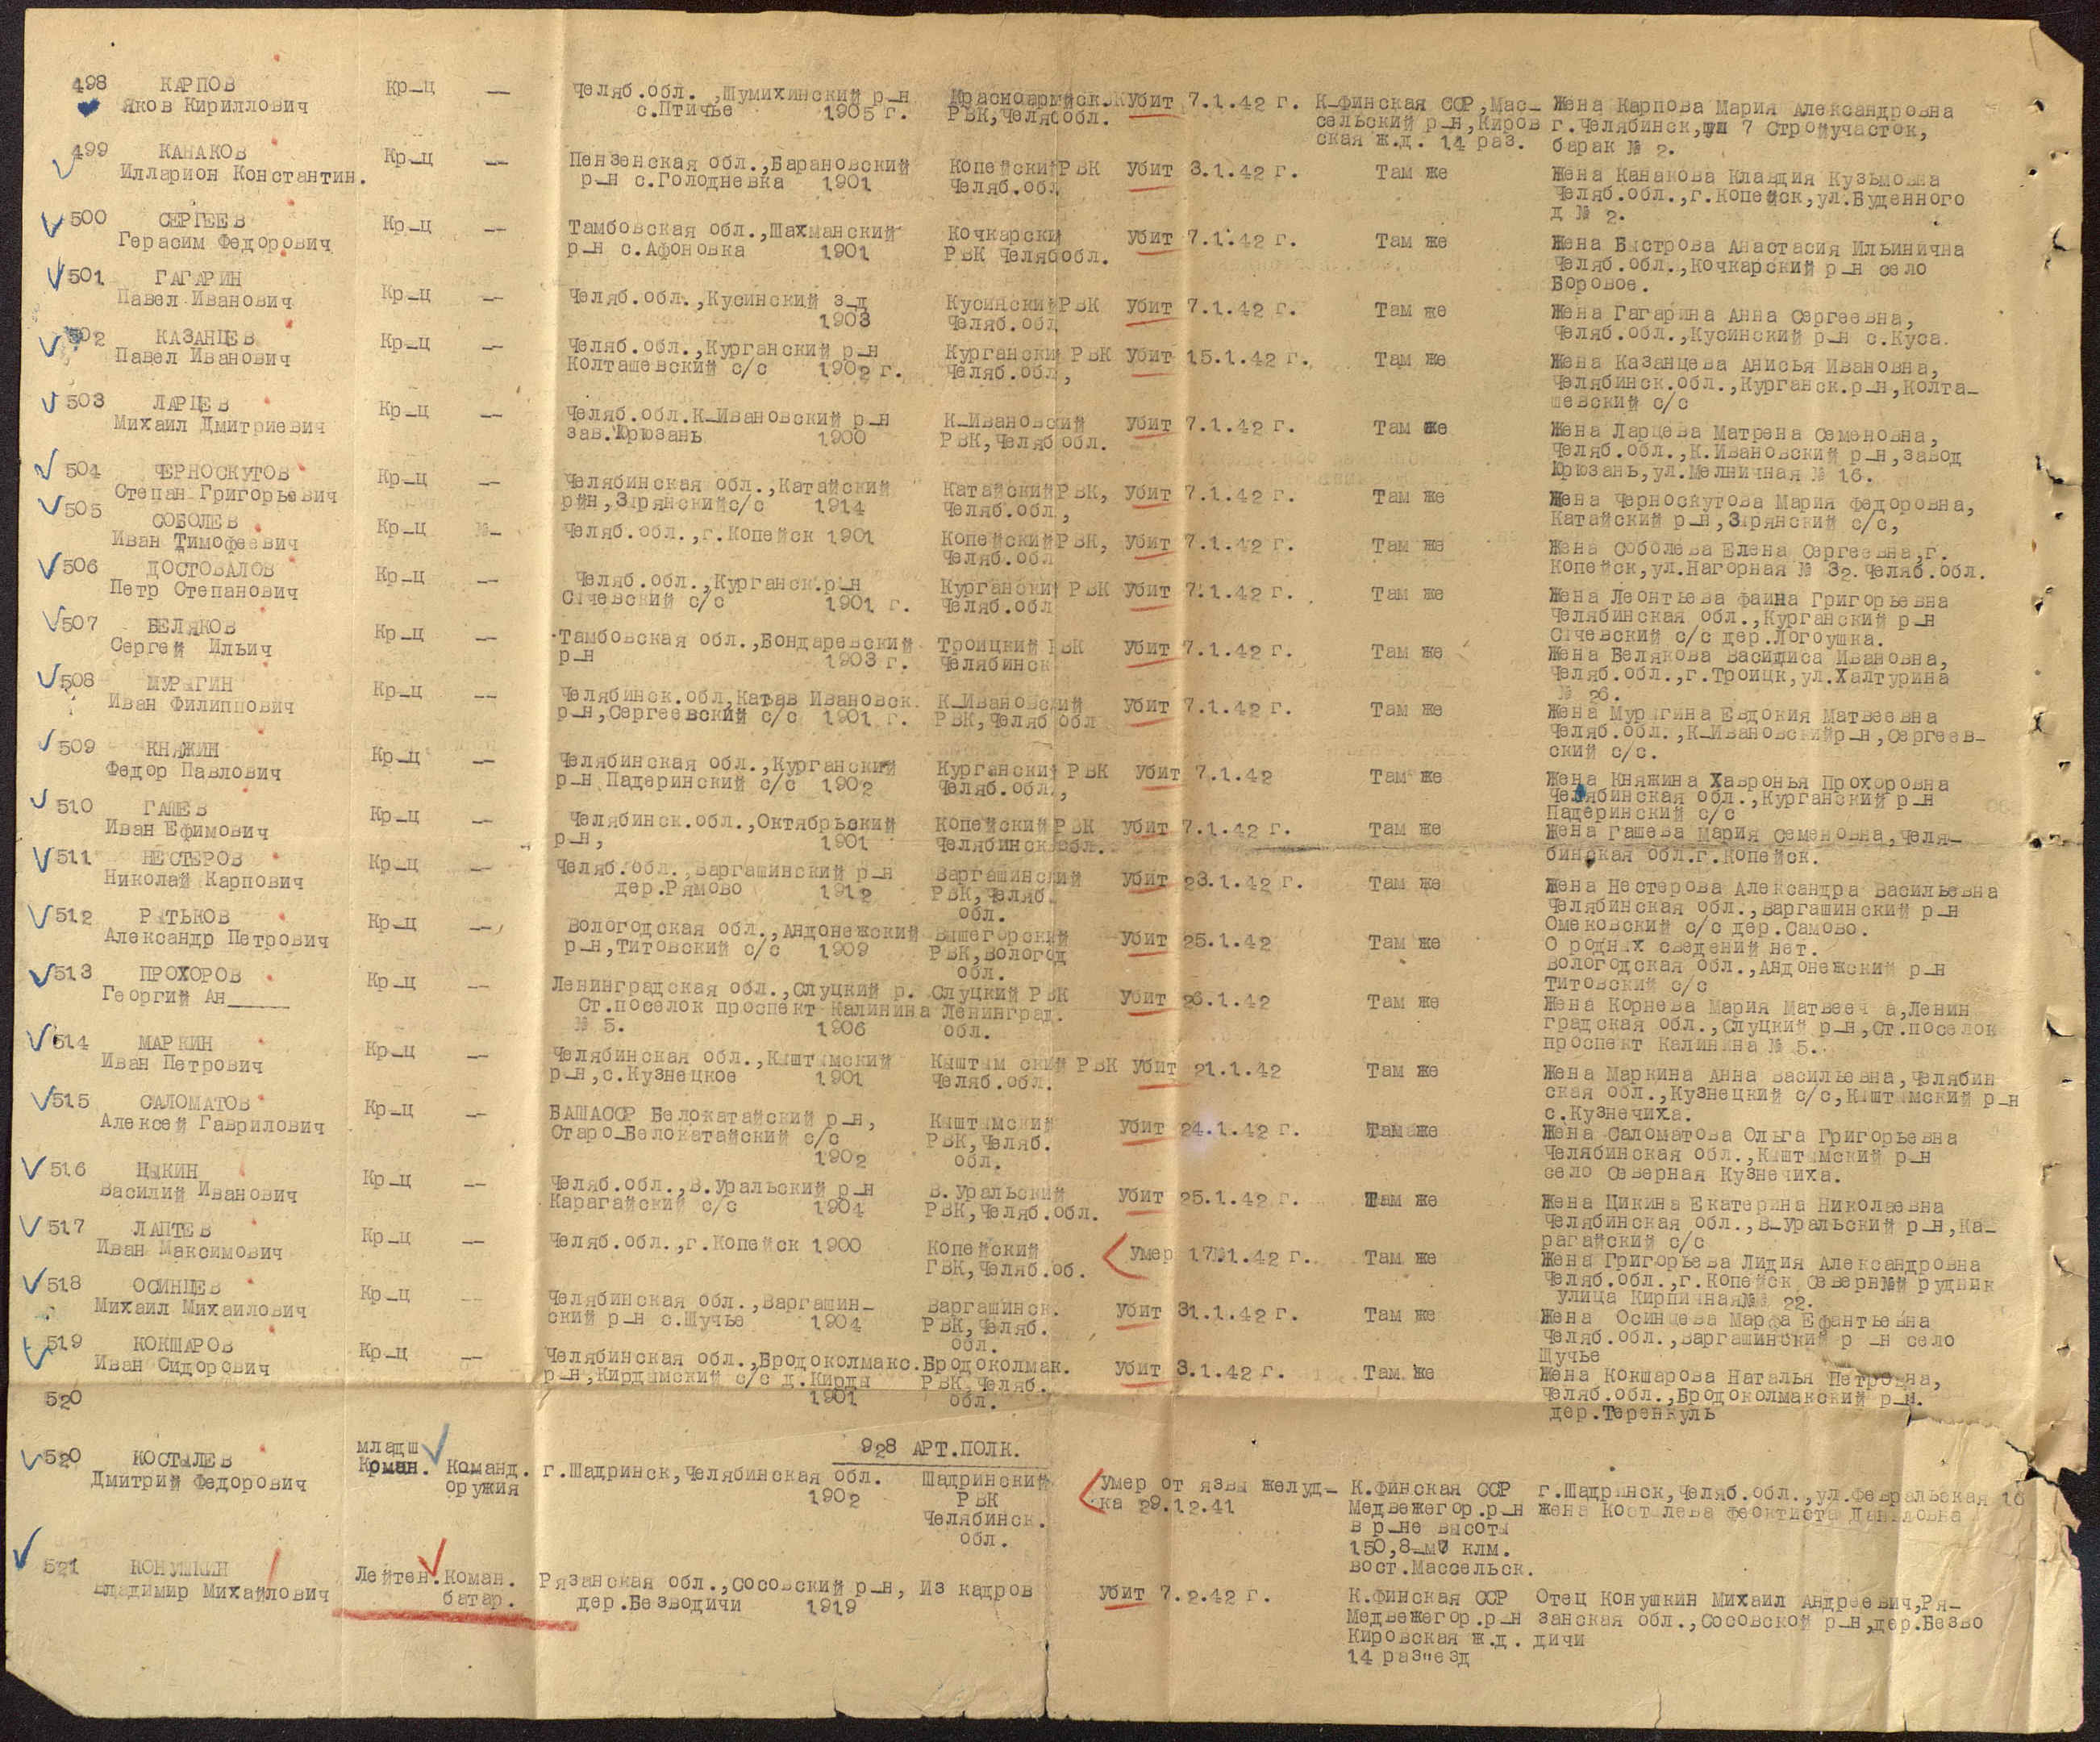 498 КАРПОВ Кр-ц — Челяб.обл. ,Шумихинский р-н Красноармейск. Убит 7.1.42 г. К-Финская ССР, Мас- Жена Карпова Мария Александровна
Яков Кириллович с.Птичье 1905 г. РВК, Челяб обл. сельский р-н, Киров г.Челябинск, 7 Стройучасток,
ская ж.д. 14 раз. барак № 2.
499 КАНАКОВ Кр-ц — Пензенская обл.,Барановский Копейский РВК Убит 3.1.42 г. Там же Жена Канакова Клавдия Кузьмовна
Илларион Константин. р-н с.Голодневка 1901 Челяб.обл Челяб.обл.,г.Копейск,ул.Буденного
д № 2.
500 СЕРГЕЕВ Кр-ц — Тамбовская обл.,Шахманский Кочкарски Убит 7.1.42 г. Там же Жена Быстрова Анастасия Ильинична
Герасим Федорович р-н с.Афоновка 1901 РВК Челяб обл. Челяб.обл.,Кочкарский р-н село
Боровое.
501 ГАГАРИН Кр-ц — Челяб.обл.,Кусинский з-д Кусински РВК Убит 7.1.42 г. Там же Жена Гагарина Анна Сергеевна,
Павел Иванович 1903 Челяб.обл Челяб.обл.,Кусинский р-н с.Куса.
502 КАЗАНЦЕВ Кр-ц — Челяб.обл.,Курганский р-н Кургански РВК Убит 15.1.42 г. Там же Жена Казанцева Анисья Ивановна,
Павел Иванович Колташевский с/с 1902 г. Челяб.обл, Челябинск.обл.,Курганск.р-н,Колта-
шевский с/с
503 ЛАРЦЕВ Кр-ц — Челяб.обл.К-Ивановский р-н К-Ивановский Убит 7.1.42 г. Там же Жена Ларцева Матрена Семеновна,
Михаил Дмитриевич зав.Юрюзань 1900 РВК,Челяб обл. Челяб.обл.,К.Ивановский р-н,завод
Юрюзань,ул.Мелничная № 16.
504 ЧЕРНОСКУТОВ Кр-ц — Челябинская обл.,Катайский Катайский РВК, Убит 7.1.42 г. Там же Жена Черноскутова Мария Федоровна,
Степан Григорьевич рйн,Зырянский с/с 1914 Челяб.обл, Катайский р-н,Зырянский с/с,
505 СОБОЛЕВ Кр-ц №- Челяб.обл.,г.Копейск 1901 Копейский РВК, Убит 7.1.42 г. Там же Жена Соболева Елена Сергеевна,г.
Иван Тимофеевич Челяб.обл Копейск,ул.Нагорная № 32.Челяб.обл.
506 ДОСТОВАЛОВ Кр-ц — Челяб.обл.,Курганск.р-н Кургански РВК Убит 7.1.42 г. Там же Жена Леонтьева Фаина Григорьевна
Петр Степанович Сычевский с/с 1901 г. Челяб.обл Челябинская обл.,Курганский р-н
Сычевский с/с дер.Логоушка.
507 БЕЛЯКОВ Кр-ц — Тамбовская обл.,Бондаревский Троицкий РВК Убит 7.1.42 г. Там же Жена Белякова Василиса Ивановна,
Сергей Ильич р-н 1903 г. Челябинск Челяб.обл.,г.Троицк,ул.Халтурина
№ 26.
508 МУРЫГИН Кр-ц — Челябинск.обл,Катав Ивановск. К-Ивановский Убит 7.1.42 г. Там же Жена Мурыгина Евдокия Матвеевна
Иван Филиппович р-н,Сергеевский с/с 1901 г. РВК,Челяб обл Челяб.обл.,К-Ивановский р-н,Сергеев-
ский с/с.
509 КНЯЖИН Кр-ц — Челябинская обл.,Курганский Кургански РВК Убит 7.1.42 Там же Жена Княжина Хавронья Прохоровна
Федор Павлович р-н Падеринский с/с 1902 Челяб.обл, Челябинская обл.,Курганский р-н
Падеринский с/с
510 ГАШЕВ Кр-ц — Челябинск.обл.,Октябрьский Копейский РВК Убит 7.1.42 г. Там же Жена Гашева Мария Семеновна,Челя-
Иван Ефимович р-н, 1901 Челябинск обл. бинская обл.г.Копейск.
511 НЕСТЕРОВ Кр-ц — Челяб.обл.,Варгашинский р-н Варгашинский Убит 23.1.42 г. Там же Жена Нестерова Александра Васильевна
Николай Карпович дер.Рямово 1912 РВК,Челяб. Челябинская обл.,Варгашинский р-н
обл. Омековский с/с дер.Самово.
512 РЫТЬКОВ Кр-ц — Вологодская обл.,Андонежский Вышегорский Убит 25.1.42 Там же О родных сведений нет.
Александр Петрович р-н,Титовский с/с 1909 РВК,Вологод Вологодская обл.,Андонежский р-н
обл. Титовский с/с
513 ПРОХОРОВ Кр-ц — Ленинградская обл.,Слуцкий р. Слуцкий РВК Убит 26.1.42 Там же Жена Корнева Мария Матвеев а,Ленин
Георгий Ан_____ Ст.поселок проспект Калинина Ленинград. градская обл.,Слуцкий р-н,Ст.поселок
№ 5. 1906 обл. проспект Калинина № 5.
514 МАРКИН Кр-ц — Челябинская обл.,Кыштымский Кыштым ский РВК Убит 21.1.42 Там же Жена Маркина Анна Васильевна,Челябин
Иван Петрович р-н,с.Кузнецкое 1901 Челяб.обл. ская обл.,Кузнецкий с/с,Кыштымский р-н
с.Кузнечиха.
515 САЛОМАТОВ Кр-ц — БАШАССР Белокатайский р-н, Кыштымский Убит 24.1.42 г. Там же Жена Саломатова Ольга Григорьевна
Алексей Гаврилович Старо-Белокатайский с/с РВК,Челяб. Челябинская обл.,Кыштымский р-н
1902 обл. село Северная Кузнечиха.
516 ЦЫКИН Кр-ц — Челяб.обл.,В.Уральский р-н В.Уральский Убит 25.1.42 г. Там же Жена Цикина Екатерина Николаевна
Василий Иванович Карагайский с/с 1904 РВК,Челяб.обл. Челябинская обл.,В-Уральский р-н,Ка-
рагайский с/с
517 ЛАПТЕВ Кр-ц — Челяб.обл.,г.Копейск 1900 Копейский Умер 17№1.42 г. Там же Жена Григорьева Лидия Александровна
Иван Максимович ГВК,Челяб.об. Челяб.обл.,г.Копейск Северный рудник
улица Кирпичная№ 22.
518 ОСИНЦЕВ Кр-ц -- Челябинская обл.,Варгашин- Варгашинск. Убит 31.1.42 г. Там же Жена Осинцева Марфа Ефантьевна
Михаил Михаилович ский р-н с.Щучье 1904 РВК,Челяб. Челяб.обл.,Варгашинский р -н село
обл. Щучье
519 КОКШАРОВ Кр-ц — Челябинская обл.,Бродоколмакс. Бродоколмак. Убит 3.1.42 г. Там же Жена Кокшарова Наталья Петровна,
Иван Сидорович р-н,Кирдымский с/с д.Кирды РВК,Челяб. Челяб.обл.,Бродоколмакский р-н.
520 1901 обл. дер.Теренкуль
928 АРТ.ПОЛК.
520 КОСТЫЛЕВ младш Коман. Команд. г.Шадринск,Челябинская обл. Шадринский Умер от язвы желуд- К.Финская ССР г.Шадринск,Челяб.обл.,ул.Февральская 16
Дмитрий Федорович оружия 1902 РВК ка 29.12.41 Медвежегор.р-н жена Костылева Феоктиста Даниловна
Челябинск. в р-не высоты
обл. 150,8-м7 клм.
вост.Массельск.
521 КОНУШКИН Лейтен. Коман. Рязанская обл.,Сосовский р-н, Из кадров Убит 7.2.42 г. К.Финская ССР Отец Конушкин Михаил Андреевич,Ря-
Владимир Михайлович батар. дер.Безводичи 1919 Медвежегор.р-н занская обл.,Сосовской р-н,дер.Безво
Кировская ж.д. дичи
14 раз"езд